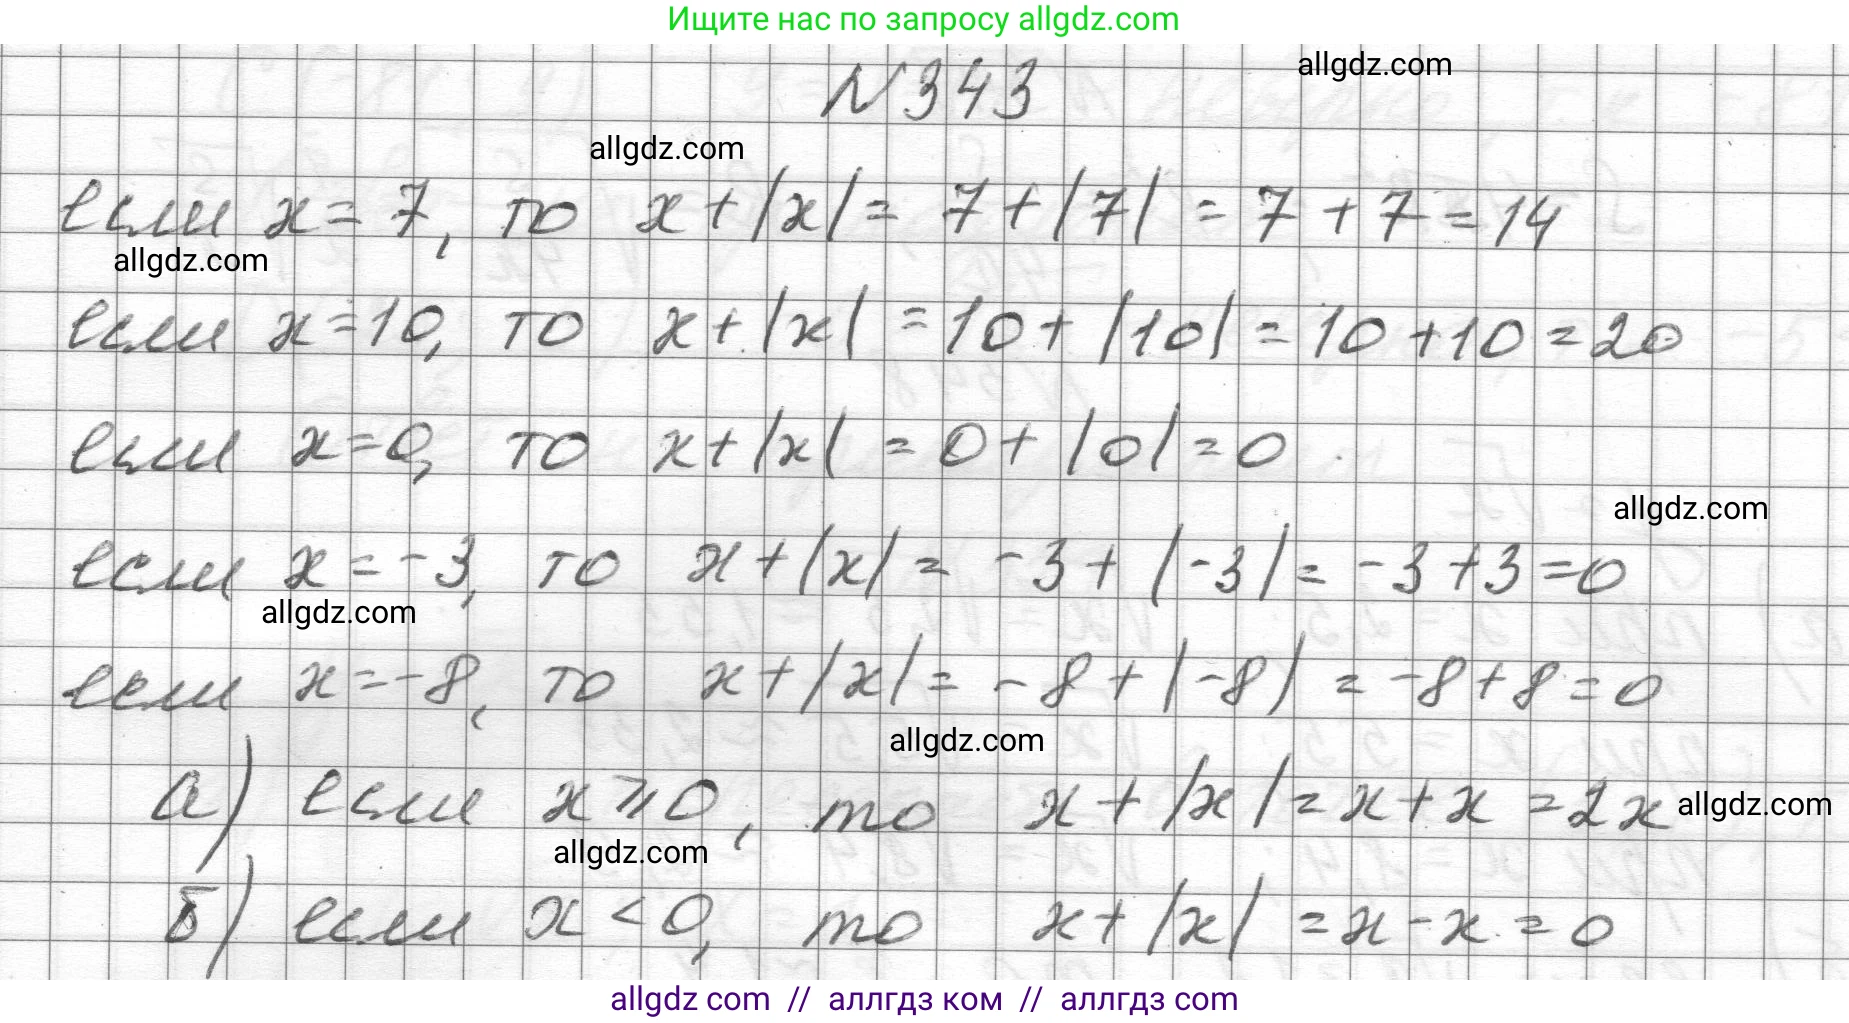 Ищите нас по запросу allgdz.com
N 343
allgdz.com
allgdz.com
если x = 7, то x + |x| = 7 + |7| = 7 + 7 = 14
allgdz.com
если x = 10, то x + |x| = 10 + |10| = 10 + 10 = 20
если x = 0, то x + |x| = 0 + |0| = 0
allgdz.com
если x = -3, то x + |x| = -3 + |-3| = -3 + 3 = 0
allgdz.com
если x = -8, то x + |x| = -8 + |-8| = -8 + 8 = 0
allgdz.com
а) если x ⩾ 0, то x + |x| = x + x = 2x
allgdz.com
allgdz.com
б) если x < 0, то x + |x| = x - x = 0
allgdz com // аллгдз ком // аллгдз com